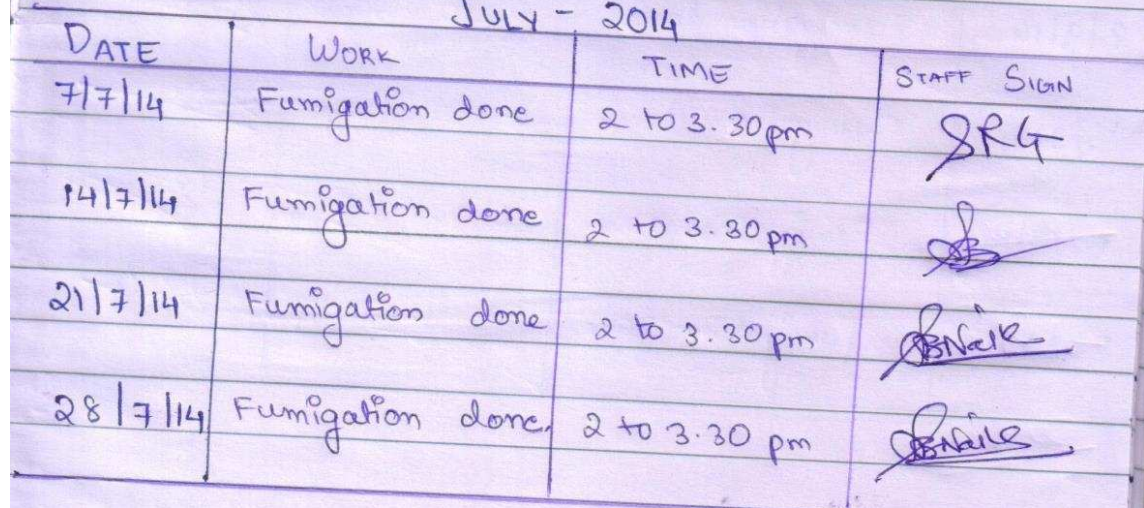 JULY - 2014
DATE WORK TIME STAFF SIGN
7/7/14 Fumigation done 2 to 3.30pm SRG
14/7/14 Fumigation done 2 to 3.30pm
21/7/14 Fumigation done 2 to 3.30pm SBNaik
28/7/14 Fumigation done. 2 to 3.30 pm SBNaik